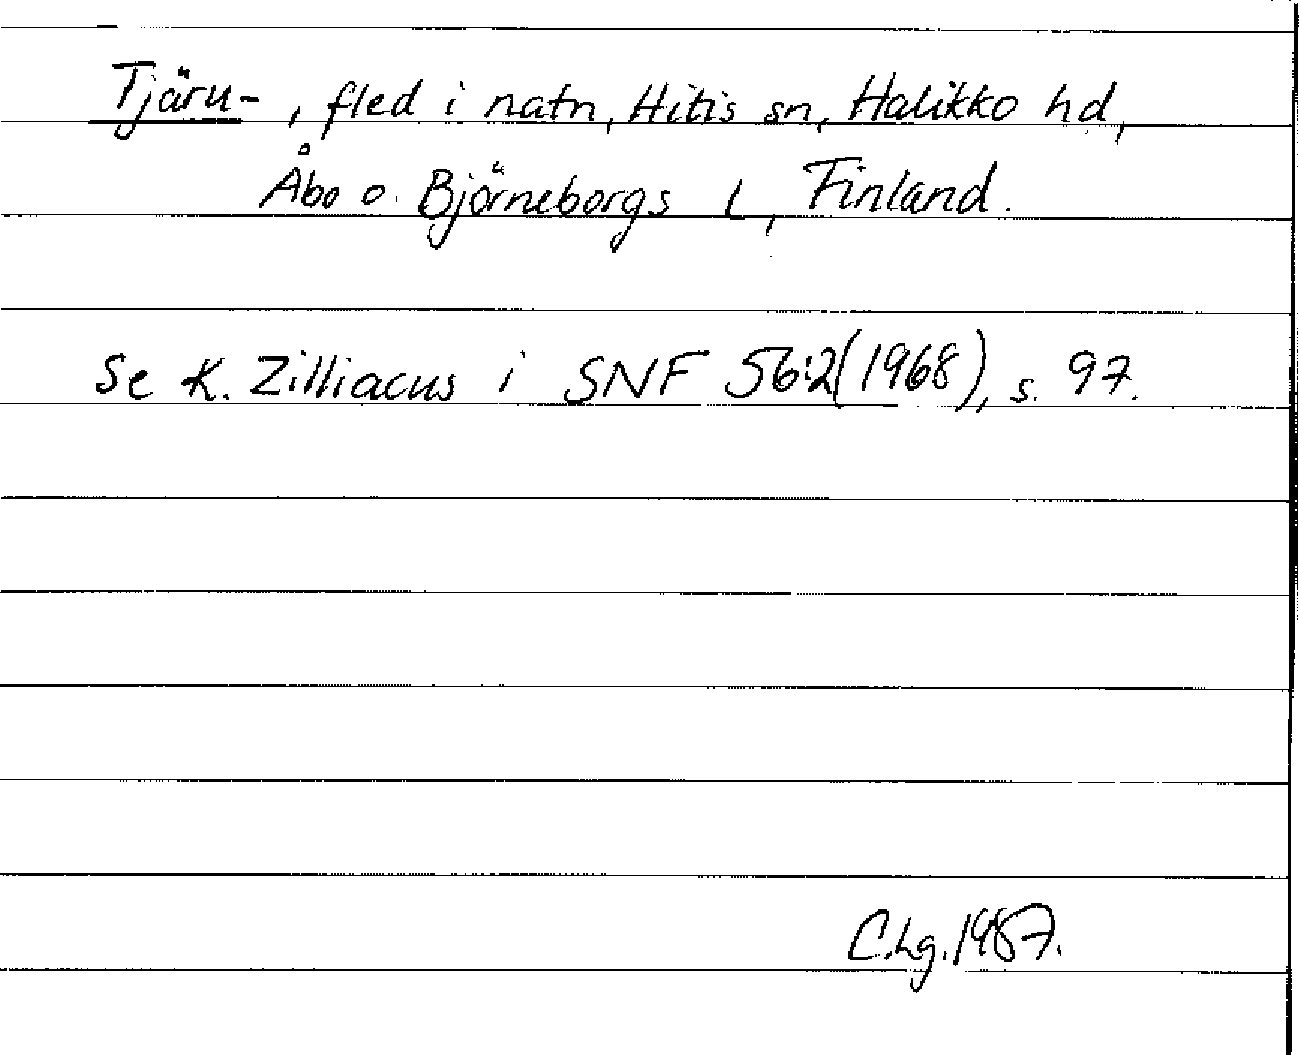 Tjäru-, fled i natn, Hitis sn, Halikko hd,
Åbo o. Björneborgs l, Finland.
Se K. Zilliacus i SNF 56:2(1968), s. 97.
C.Lg.1987.